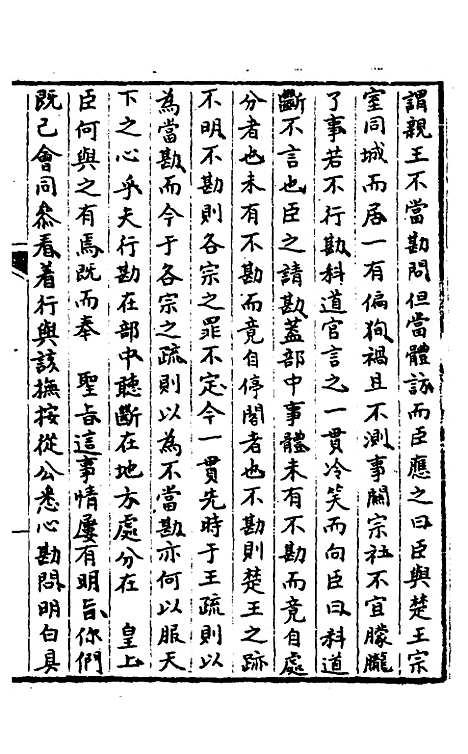 謂親王不當勘問但當體訪而臣應之曰臣與楚王宗
室同城而居一有偏狥禍且不測事關宗社不宜朦朧
了事若不行勘科道官言之一貫冷笑而向臣曰科道
斷不言也臣之請勘蓋部中事體未有不勘而竟自處
分者也未有不勘而竟自停閣者也不勘則楚王之跡
不明不勘則各宗之罪不定今一貫先時于王疏則以
為當勘而今于各宗之疏則以為不當勘亦何以服天
下之心乎夫行勘在部中聽斷在地方處分在　皇上
臣何與之有焉既而奉　聖旨這事情屢有明旨你們
既已會同叅看着行與該撫按從公悉心勘問明白具